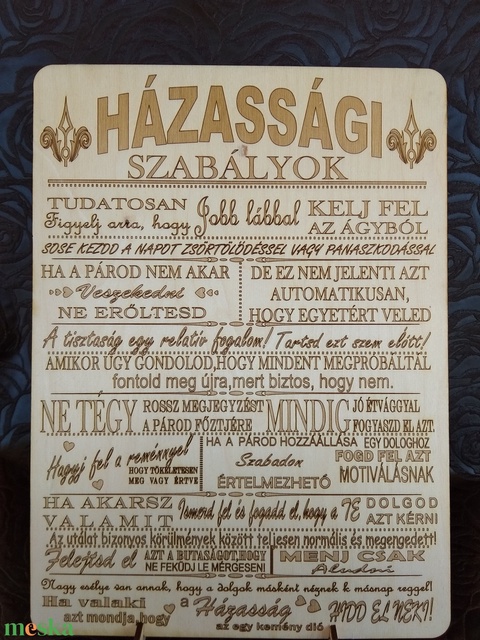 HÁZASSÁGI
SZABÁLYOK
TUDATOSAN
Figyelj arra, hogy
Jobb lábbal
KELJ FEL
AZ ÁGYBÓL
SOSE KEZDD A NAPOT ZSÖRTÖLŐDÉSSEL VAGY PANASZKODÁSSAL
HA A PÁROD NEM AKAR
Veszekedni
NE ERŐLTESD
DE EZ NEM JELENTI AZT
AUTOMATIKUSAN,
HOGY EGYETÉRT VELED
A tisztaság egy relatív fogalom! Tartsd ezt szem előtt!
AMIKOR ÚGY GONDOLOD,HOGY MINDENT MEGPRÓBÁLTÁL
fontold meg újra,mert biztos, hogy nem.
NE TÉGY
ROSSZ MEGJEGYZÉST
A PÁROD FŐZTJÉRE
MINDIG
JÓ ÉTVÁGGYAL
FOGYASZD EL AZT.
Hagyj fel a reménnyel
HOGY TÖKÉLETESEN
MEG VAGY ÉRTVE
HA A PÁROD HOZZÁÁLLÁSA EGY DOLOGHOZ
Szabadon
ÉRTELMEZHETŐ
FOGD FEL AZT
MOTIVÁLSNAK
HA AKARSZ
VALAMIT
Ismerd fel és fogadd el,hogy a TE
DOLGOD
AZT KÉRNI
Az utálat bizonyos körülmények között teljesen normális és megengedett!
Felejtsd el
AZT A BUTASÁGOT,HOGY
NE FEKÜDJ LE MÉRGESEN!
MENJ CSAK
Aludni
Nagy esélye van annak, hogy a dolgok másként néznek k másnap reggel!
Ha valaki
azt mondja,hogy
a Házasság
az egy kemény dió
HIDD EL NEKI!
meska